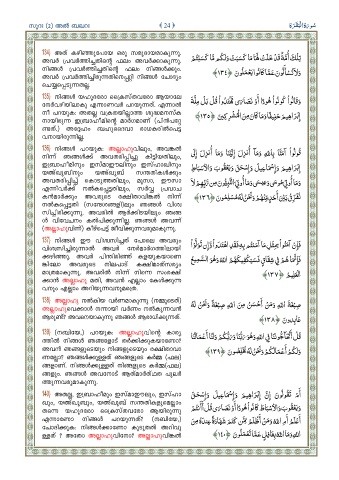 സൂറ (2) അൽ ബഖറ
﴿ 24 ﴾
سُورَةُ الْبَقَرَةِ
134) അത് കഴിഞ്ഞുപോയ ഒരു സമുദായമാകുന്നു.
അവർ പ്രവർത്തിച്ചതിന്റെ ഫലം അവർക്കാകുന്നു.
നിങ്ങൾ പ്രവർത്തിച്ചതിന്റെ ഫലം നിങ്ങൾക്കും.
അവർ പ്രവർത്തിച്ചിരുന്നതിനെപ്പറ്റി നിങ്ങൾ ചോദ്യം
ചെയ്യപ്പെടുന്നതല്ല.
تِلْكَ أُمَّةٌ قَدْ خَلَتْ لَهَا مَا كَسَبَتْ وَلَكُم مَّا كَسَبْتُمْ
وَلَا تُسْأَلُونَ عَمَّا كَانُوا يَعْمَلُونَ ﴿١٣٤﴾
135) നിങ്ങൾ യഹൂദരോ ക്രൈസ്തവരോ ആയാലേ
നേർവഴിയിലാകൂ എന്നാണവർ പറയുന്നത്. എന്നാൽ
നീ പറയുക: അതല്ല വക്രതയില്ലാത്ത ശുദ്ധമനസ്ക
നായിരുന്ന ഇബ്രാഹീമിന്റെ മാർഗമാണ് (പിൻപറ്റേ
ണ്ടത്.) അദ്ദേഹം ബഹുദൈവാ രാധകരിൽപെട്ട
വനായിരുന്നില്ല.
وَقَالُوا كُونُوا هُودًا أَوْ نَصَارَىٰ تَهْتَدُوا قُلْ بَلْ مِلَّةَ
إِبْرَاهِيمَ حَنِيفًا وَمَا كَانَ مِنَ الْمُشْرِكِينَ ﴿١٣٥﴾
136) നിങ്ങൾ പറയുക: അല്ലാഹുവിലും, അവങ്കൽ
നിന്ന് ഞങ്ങൾക്ക് അവതരിപ്പിച്ചു കിട്ടിയതിലും,
ഇബ്രാഹീമിനും ഇസ്മാഈലിനും ഇസ്ഹാഖിനും
യഅ്ഖൂബിനും യഅ്ഖൂബ് സന്തതികൾക്കും
അവതരിപ്പിച്ച് കൊടുത്തതിലും, മൂസാ, ഈസാ
എന്നിവർക്ക് നൽകപ്പെട്ടതിലും, സർവ്വ പ്രവാച
കൻമാർക്കും അവരുടെ രക്ഷിതാവിങ്കൽ നിന്ന്
നൽകപ്പെട്ടതി (സന്ദേശങ്ങളി)ലും ഞങ്ങൾ വിശ്വ
സിച്ചിരിക്കുന്നു. അവരിൽ ആർക്കിടയിലും ഞങ്ങ
ൾ വിവേചനം കൽപിക്കുന്നില്ല. ഞങ്ങൾ അവന്ന്
(അല്ലാഹുവിന്ന്) കീഴ്പെട്ട് ജീവിക്കുന്നവരുമാകുന്നു.
قُولُوا آمَنَّا بِاللَّهِ وَمَا أُنزِلَ إِلَيْنَا وَمَا أُنزِلَ إِلَىٰ
إِبْرَاهِيمَ وَإِسْمَاعِيلَ وَإِسْحَقَ وَيَعْقُوبَ وَالْأَسْبَاطِ
وَمَا أُوتِيَ مُوسَىٰ وَعِيسَىٰ وَمَا أُوتِيَ النَّبِيُّونَ مِن رَّبِّهِمْ لَا
نُفَرِّقُ بَيْنَ أَحَدٍ مِّنْهُمْ وَنَحْنُ لَهُ مُسْلِمُونَ ﴿١٣٦﴾
137) നിങ്ങൾ ഈ വിശ്വസിച്ചത് പോലെ അവരും
വിശ്വസിച്ചിരുന്നാൽ അവർ നേർമാർഗത്തിലായി
ക്കഴിഞ്ഞു. അവർ പിന്തിരിഞ്ഞ് കളയുകയാണെ
ങ്കിലോ അവരുടെ നിലപാട് കക്ഷിമാത്സര്യം
മാത്രമാകുന്നു. അവരിൽ നിന്ന് നിന്നെ സംരക്ഷി
ക്കാൻ അല്ലാഹു മതി. അവൻ എല്ലാം കേൾക്കുന്ന
വനും എല്ലാം അറിയുന്നവനുമത്രെ.
فَإِنْ آمَنُوا بِمِثْلِ مَا آمَنتُم بِهِ فَقَدِ اهْتَدَوا وَّإِن تَوَلَّوْا
فَإِنَّمَا هُمْ فِي شِقَاقٍ فَسَيَكْفِيكَهُمُ اللَّهُ وَهُوَ السَّمِيعُ
الْعَلِيمُ ﴿١٣٧﴾
138) അല്ലാഹു നൽകിയ വർണമാകുന്നു (നമ്മുടേത്)
അല്ലാഹുവെക്കാൾ നന്നായി വർണം നൽകുന്നവൻ
ആരുണ്ട്? അവനെയാകുന്നു ഞങ്ങൾ ആരാധിക്കുന്നത്.
صِبْغَةَ اللَّهِ وَمَنْ أَحْسَنُ مِنَ اللَّهِ صِبْغَةً وَنَحْنُ لَهُ
عَابِدُونَ ﴿١٣٨﴾
139) (നബിയേ,) പറയുക: അല്ലാഹുവിന്റെ കാര്യ
ത്തിൽ നിങ്ങൾ ഞങ്ങളോട് തർക്കിക്കുകയാണോ?
അവൻ ഞങ്ങളുടെയും നിങ്ങളുടെയും രക്ഷിതാവാ
ണല്ലോ? ഞങ്ങൾക്കുള്ളത് ഞങ്ങളുടെ കർമ്മ (ഫല)
ങ്ങളാണ്. നിങ്ങൾക്കുള്ളത് നിങ്ങളുടെ കർമ്മ(ഫല)
ങ്ങളും. ഞങ്ങൾ അവനോട് ആത്മാർത്ഥത പുലർ
ത്തുന്നവരുമാകുന്നു.
قُلْ أَتُحَاجُّونَنَا فِي اللَّهِ وَهُوَ رَبُّنَا وَرَبُّكُمْ وَلَنَا أَعْمَالُنَا
وَلَكُمْ أَعْمَالُكُمْ وَنَحْنُ لَهُ مُخْلِصُونَ ﴿١٣٩﴾
140) അതല്ല, ഇബ്രാഹീമും ഇസ്മാഈലും, ഇസ്ഹാ
ഖും, യഅ്ഖൂബും, യഅ്ഖൂബ് സന്തതികളുമെല്ലാം
തന്നെ യഹൂദരോ ക്രൈസ്തവരോ ആയിരുന്നു
എന്നാണോ നിങ്ങൾ പറയുന്നത്? (നബിയേ,)
ചോദിക്കുക: നിങ്ങൾക്കാണോ കൂടുതൽ അറിവു
ള്ളത് ? അതോ അല്ലാഹുവിനോ? അല്ലാഹുവിങ്കൽ
أَمْ تَقُولُونَ إِنَّ إِبْرَاهِيمَ وَإِسْمَاعِيلَ وَإِسْحَقَ
وَيَعْقُوبَ وَالْأَسْبَاطَ كَانُوا هُودًا أَوْ نَصَارَىٰ قُلْ أَأَنتُمْ
أَعْلَمُ أَمِ اللَّهُ وَمَنْ أَظْلَمُ مِمَّن كَتَمَ شَهَادَةً عِندَهُ مِنَ
اللَّهِ وَمَا اللَّهُ بِغَافِلٍ عَمَّا تَعْمَلُونَ ﴿١٤٠﴾